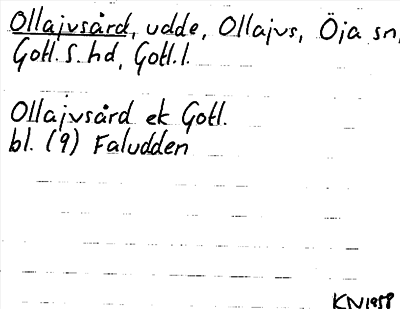 Ollajvsård, udde, Ollajvs, Öja sn,
Gotl. S. hd, Gotl. l.
Ollajvsård ek Gotl.
bl. (9) Faludden
KN 1958